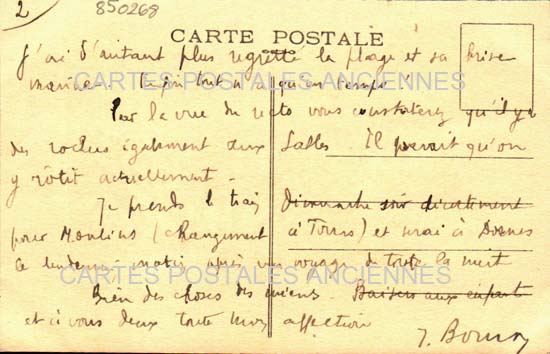 2 850268
CARTE POSTALE
J'ai d'autant plus regretté la plage et sa brise
marine. Enfin tout n'a qu'un temps !
CARTES POSTALES ANCIENNES
Par la vue du recto vous constaterez qu'il y a
des roches également aux Sables. Il paraît qu'on
y rôtit actuellement.
Je prends le train Dimanche soir directement
pour Moulins (changement à Tours) et serai à Dornes
le lendemain matin après un voyage de toute la nuit
CARTES POSTALES ANCIENNES
Bien des choses des miens. Baisers aux enfants
et à vous deux toute mon affection
J.